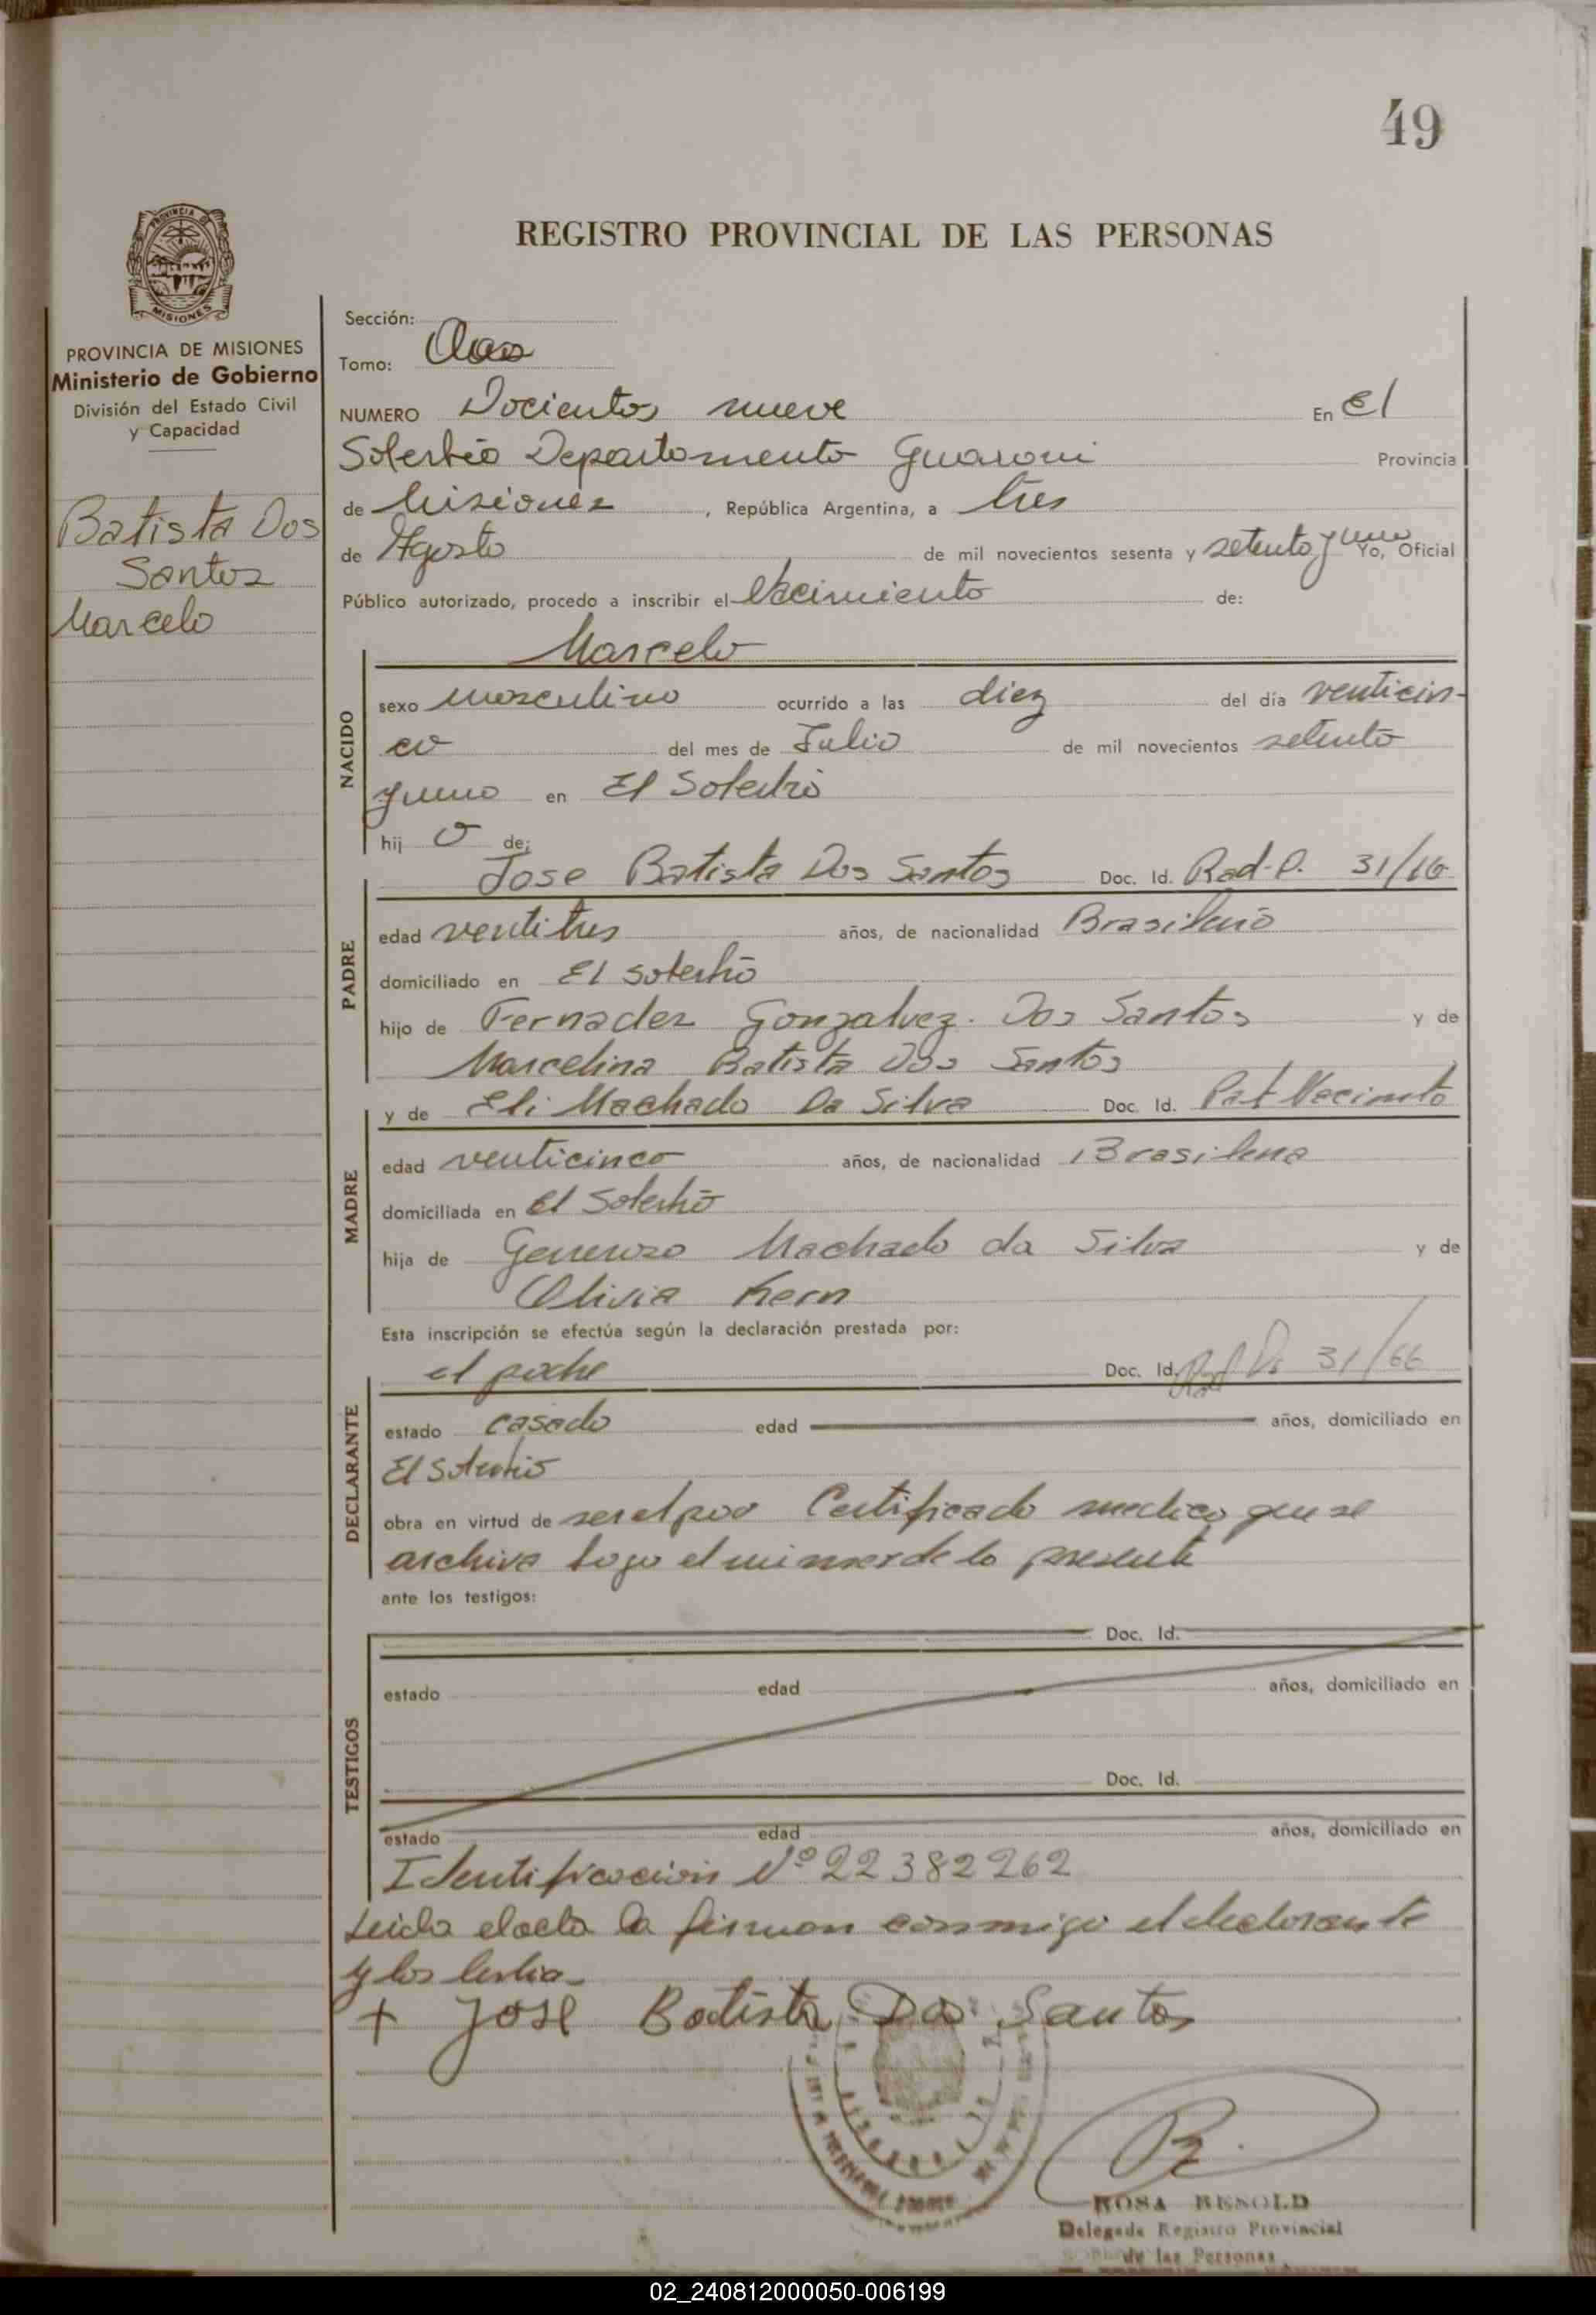 49
REGISTRO PROVINCIAL DE LAS PERSONAS
PROVINCIA DE MISIONES
PROVINCIA DE MISIONES
Ministerio de Gobierno
División del Estado Civil
y Capacidad
Batista Dos
Santos
Marcelo
Sección:
Tomo:
NUMERO Docientos nueve En El
Soberbio Departamento Guarani Provincia
de Misiones, República Argentina, a tres
de Agosto de mil novecientos sesenta y setenta y uno Yo, Oficial
Público autorizado, procedo a inscribir el Nacimiento de:
Marcelo
NACIDO
sexo masculino ocurrido a las diez del día venticin-
co del mes de Julio de mil novecientos setenta
y uno en El Soberbio
hij o de:
PADRE
Jose Batista Dos Santos Doc. Id. Rad. P. 31/16
edad ventitres años, de nacionalidad Brasileño
domiciliado en El Soberbio
hijo de Fernades Gonzalvez. Dos Santos y de
Marcelina Batista Dos Santos
MADRE
y de Eli Machado Da Silva Doc. Id. Part Nacimto
edad venticinco años, de nacionalidad Brasilena
domiciliada en El Soberbio
hija de Machado da Silva y de
Olivia Kern
Esta inscripción se efectúa según la declaración prestada por:
DECLARANTE
el padre Doc. Id. 31/66
estado casado edad años, domiciliado en
El Soberbio
obra en virtud de ser el Certificado medico que se
archiva bajo el de la presente
ante los testigos:
TESTIGOS
Doc. Id.
estado edad años, domiciliado en
Doc. Id.
estado edad años, domiciliado en
Identificacion Nº 22382262
Leida el acta la firman conmigo el declarante
y los
+ Jose Batista Dos Santos
ROSA BESOLD
Delegada Registro Provincial
de las Personas
02_240812000050-006199